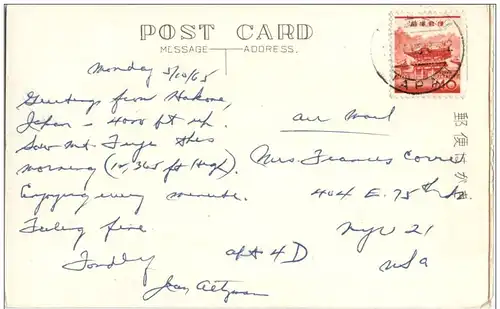 POST CARD
MESSAGE ADDRESS.
Monday 5/10/65
Greetings from Hakone,
Japan - 4000 ft up.
Saw Mt. Fuji this
morning (12,365 ft High).
Enjoying every minute.
Feeling fine.
Fondly
Air Mail
Mrs. Frances
404 E. 75th St.
apt 4D
NYC 21
USA
郵便はがき